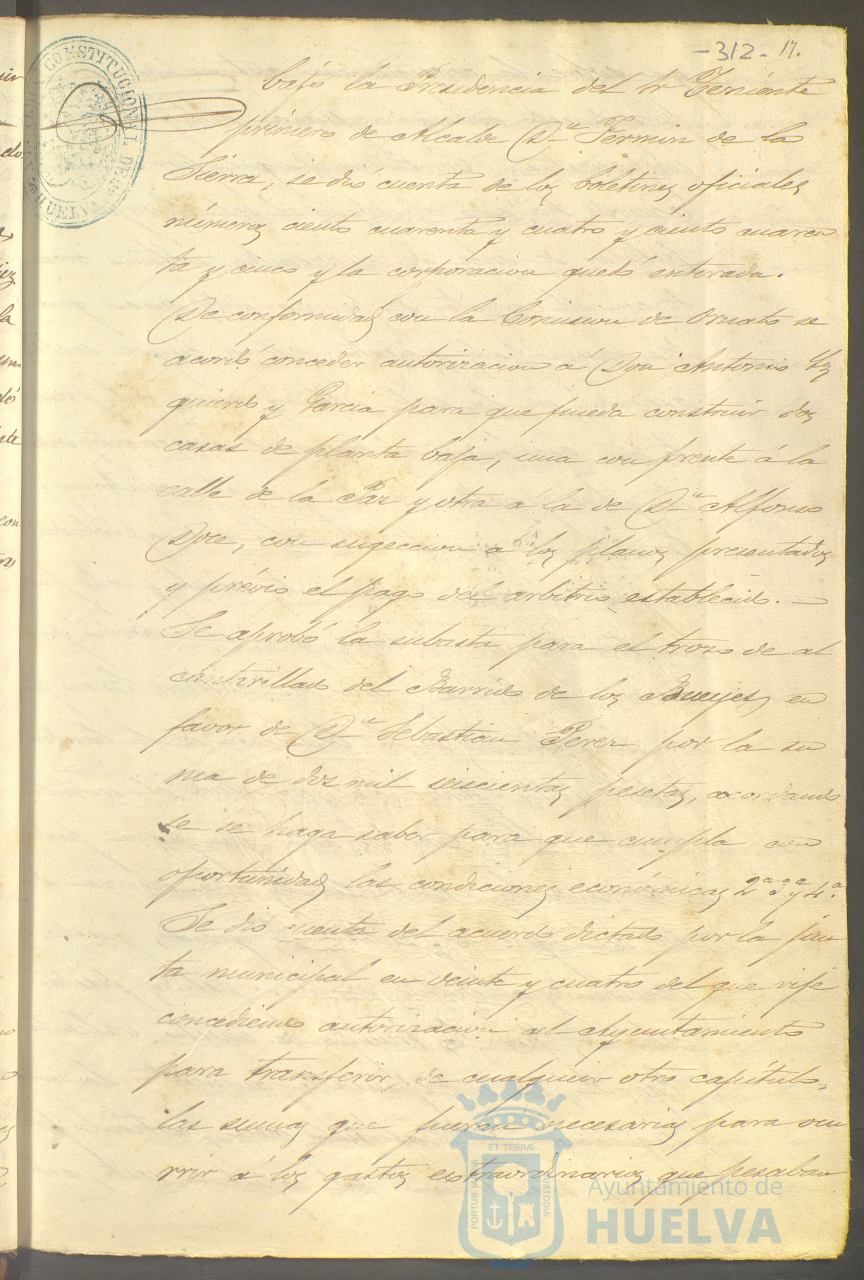 -312- 17.
CONSTITUCIONAL DE
HUELVA
bajo la Presidencia del Sr Teniente
primero de Alcalde Dn Fermin de la
Sierra, se dió cuenta de los boletines oficiales
números ciento cuarenta y cuatro y ciento cuaren
ta y cinco y la corporacion quedó enterada.
De conformidad con la Comision de Ornato se
acordó conceder autorizacion á Don Antonio Yz
quierdo y Garcia para que pueda construir dos
casas de planta baja, una con frente á la
calle de la Paz y otra á la de Dn Alfonso
Doce, con sugeccion á los planos presentados
y prévio el pago del arbitrio establecido.—
Se aprobó la subasta para el trozo de al
cantarillado del Barrido de los Bueyes, en
favor de Dn Sebastian Perez por la su
ma de dos mil seiscientas pesetas, acordando
se se haga saber para que cumpla con
oportunidad las condiciones económicas 2ª 3ª y 4ª.
Se dió cuenta del acuerdo dictado por la jun
ta municipal en veinte y cuatro del que rije
concediendo autorizacion al Ayuntamiento
para transferir, de cualquier otro capítulo,
las sumas que fueran necesarias para ocu
rrir á los gastos extraordinarios que pesaban
PORTUS ET TERRAE CUSTODIA
Ayuntamiento de
HUELVA